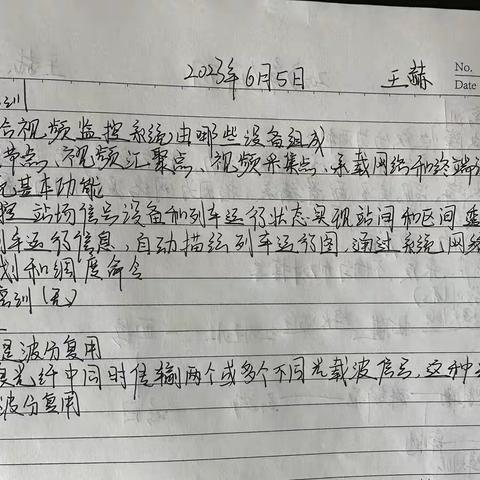 2023年6月5日 王赫 No.
Date
训
合视频监控系统由哪些设备组成
节点、视频汇聚点、视频采集点、承载网络和终端
基本功能
站场信号设备和列车运行状态实现站间和区间
车运行信息，自动描绘列车运行图，通过系统网络
划和调度命令
训（无）
是波分复用
光纤中同时传输两个或多个不同光载波信号，这种
波分复用